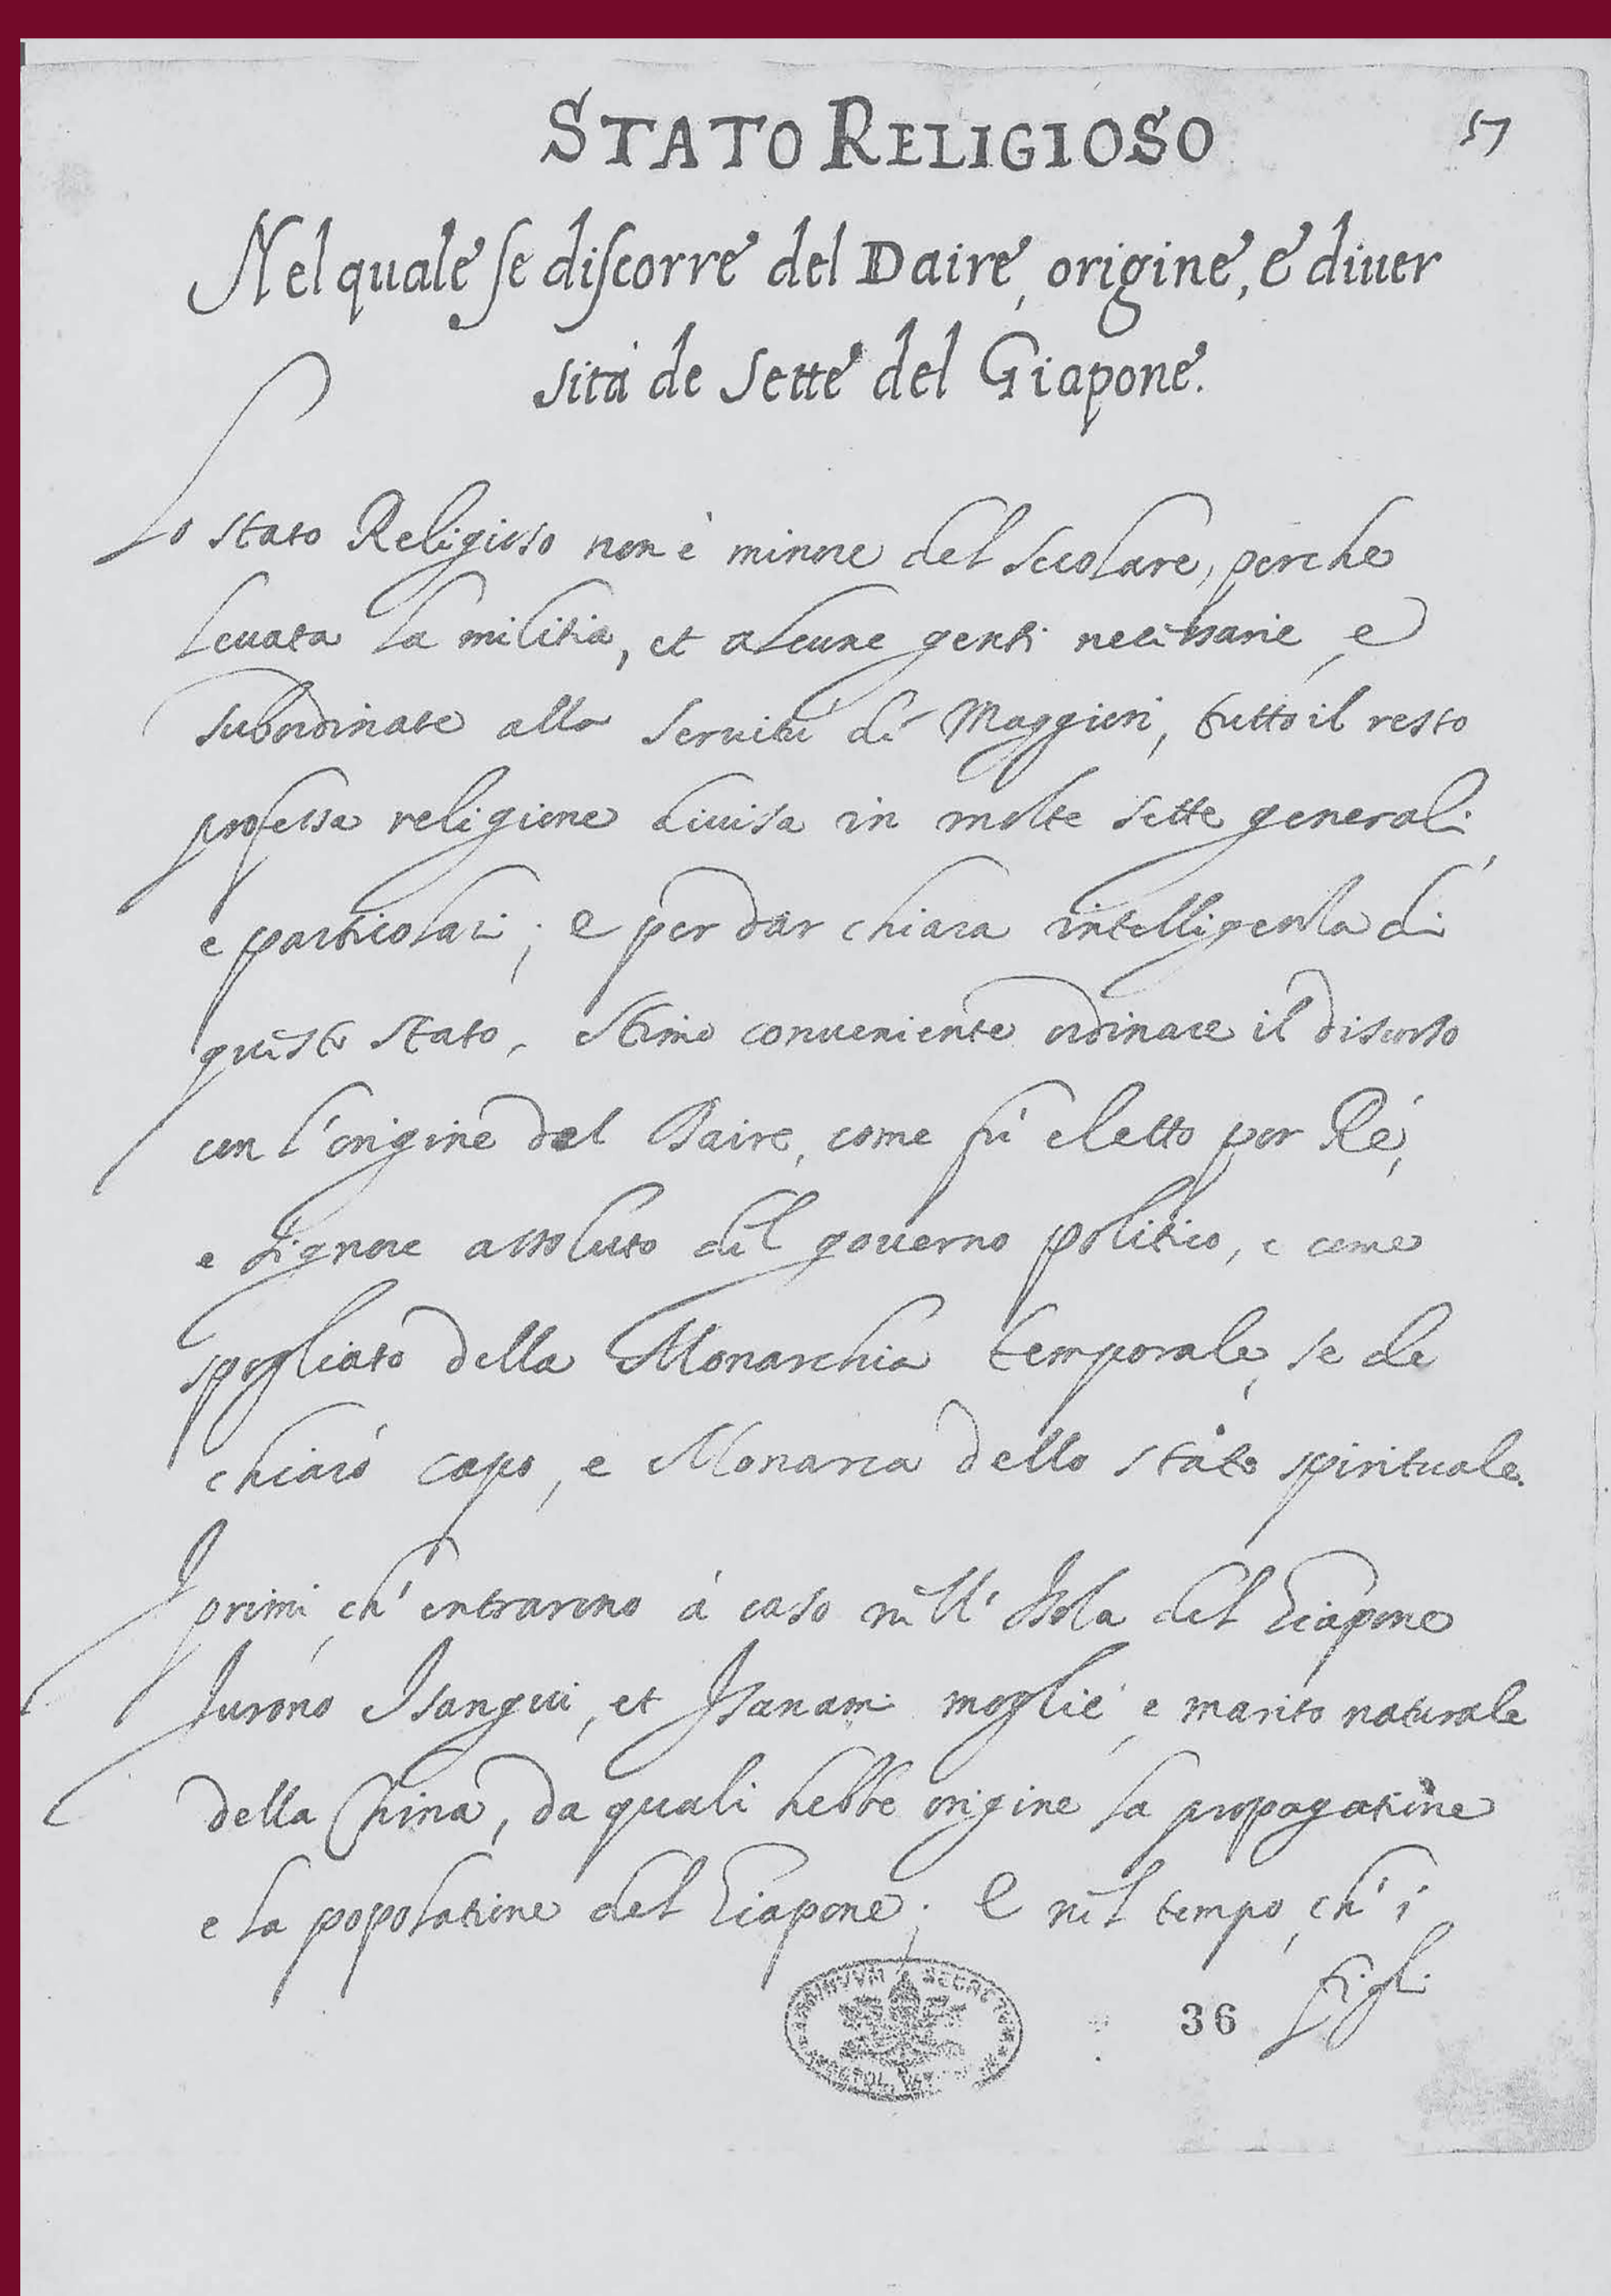 STATO RELIGIOSO
57
Nel quale se discorre del Daire, origine, e diuer
sità de Sette del Giapone.
Lo stato Religioso non è minore del secolare, perche
leuata la militia, et alcune genti necessarie, e
subordinate alla seruitù de Maggiori, tutto il resto
professa religione diuisa in molte sette generali,
e particolari; e per dar chiara intelligenza di
questo stato, stimo conueniente ordinare il discorso
con l'origine del Daire, come fù eletto per Rè,
e signore assoluto del gouerno politico, e come
spogliato della Monarchia temporale, se de
chiarò capo, e Monarca dello stato spirituale.
I primi, ch'entrarono à caso nell'Isola del Giapone
furono Isangui, et Isanami moglie, e marito naturale
della China, da quali hebbe origine la propagatione
e la popolatione del Giapone; E nel tempo, ch'i
figli
36